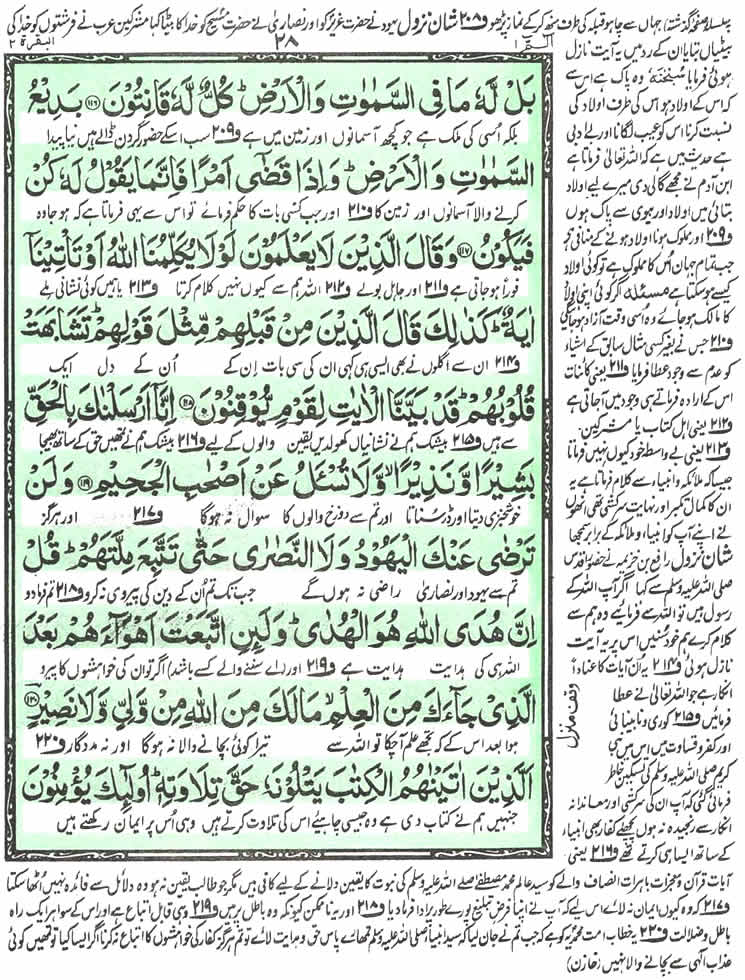 بسلسلہ صفحہ گذشتہ) جہاں سے چاہو قبلہ کی طرف منھ کرکے نماز پڑھو و۲۰۸ شان نزول یہود نے حضرت عزیر کو اور نصاریٰ نے حضرت مسیح کو خدا کا بیٹا کہا مشرکین عرب نے فرشتوں کو خدا کی
الٓمّٓ ۱
۲۸
البقرۃ ۲
بَلْ لَّهٗ مَا فِي السَّمٰوٰتِ وَالْاَرْضِ ؕ كُلٌّ لَّهٗ قَانِتُوْنَ ﴿۱۱۶﴾ بَدِيْعُ
بلکہ اُسی کی ملک ہے جو کچھ آسمانوں اور زمین میں ہے و۲۰۹ سب اسکے حضور گردن ڈالے ہیں نیا پیدا
السَّمٰوٰتِ وَالْاَرْضِ ؕ وَاِذَا قَضٰۤى اَمْرًا فَاِنَّمَا يَقُوْلُ لَهٗ كُنْ
کرنے والا آسمانوں اور زمین کا و۲۱۰ اور جب کسی بات کا حکم فرمائے تو اس سے یہی فرماتا ہے کہ ہو جا وہ
فَيَكُوْنُ ﴿۱۱۷﴾ وَقَالَ الَّذِيْنَ لَا يَعْلَمُوْنَ لَوْلَا يُكَلِّمُنَا اللّٰهُ اَوْ تَاْتِيْنَاۤ
فوراً ہو جاتی ہے و۲۱۱ اور جاہل بولے و۲۱۲ اللہ ہم سے کیوں نہیں کلام کرتا و۲۱۳ یا ہمیں کوئی نشانی ملے
اٰيَةٌ ؕ كَذٰلِكَ قَالَ الَّذِيْنَ مِنْ قَبْلِهِمْ مِّثْلَ قَوْلِهِمْ ؕ تَشَابَهَتْ
و۲۱۴ ان سے اگلوں نے بھی ایسی ہی کہی ان کی سی بات اِن کے اُن کے دل ایک
قُلُوْبُهُمْ ؕ قَدْ بَيَّنَّا الْاٰيٰتِ لِقَوْمٍ يُّوْقِنُوْنَ ﴿۱۱۸﴾ اِنَّاۤ اَرْسَلْنٰكَ بِالْحَقِّ
سے ہیں و۲۱۵ بیشک ہم نے نشانیاں کھول دیں یقین والوں کے لیے و۲۱۶ بیشک ہم نے تمھیں حق کے ساتھ بھیجا
بَشِيْرًا وَّنَذِيْرًا ۙ وَّلَا تُسْـَٔلُ عَنْ اَصْحٰبِ الْجَحِيْمِ ﴿۱۱۹﴾ وَلَنْ
خوشخبری دیتا اور ڈر سناتا اور تم سے دوزخ والوں کا سوال نہ ہوگا و۲۱۷ اور ہرگز
تَرْضٰى عَنْكَ الْيَهُوْدُ وَلَا النَّصٰرٰى حَتّٰى تَتَّبِعَ مِلَّتَهُمْ ؕ قُلْ
تم سے یہود اور نصاریٰ راضی نہ ہوں گے جب تک تم اُن کے دین کی پیروی نہ کرو و۲۱۸ تم فرما دو
اِنَّ هُدَى اللّٰهِ هُوَ الْهُدٰى ؕ وَلَىِٕنِ اتَّبَعْتَ اَهْوَآءَهُمْ بَعْدَ
اللہ ہی کی ہدایت ہدایت ہے و۲۱۹ اور (اے سننے والے کسے باشد) اگر تو ان کی خواہشوں کا پیرو
الَّذِيْ جَآءَكَ مِنَ الْعِلْمِ ۙ مَا لَكَ مِنَ اللّٰهِ مِنْ وَّلِيٍّ وَّلَا نَصِيْرٍ ﴿۱۲۰﴾
ہوا بعد اس کے کہ تجھے علم آچکا تو اللہ سے تیرا کوئی بچانے والا نہ ہوگا اور نہ مددگار و۲۲۰
اَلَّذِيْنَ اٰتَيْنٰهُمُ الْكِتٰبَ يَتْلُوْنَهٗ حَقَّ تِلَاوَتِهٖ ؕ اُولٰٓىِٕكَ يُؤْمِنُوْنَ
جنھیں ہم نے کتاب دی ہے وہ جیسی چاہیے اس کی تلاوت کرتے ہیں وہی اُس پر ایمان رکھتے ہیں
بیٹیاں بتایا ان کے رد میں یہ آیت نازل
ہوئی فرمایا سُبْحٰنَهٗ وہ پاک ہے اس سے
کہ اس کے اولاد ہو اس کی طرف اولاد کی
نسبت کرنا اس کو عیب لگانا اور بے ادبی
ہے حدیث میں ہے کہ اللہ تعالیٰ فرماتا ہے
ابن آدم نے مجھے گالی دی میرے لیے اولاد
بتائی میں اولاد اور بیوی سے پاک ہوں
و۲۰۹ اور مملوک ہونا اولاد ہونے کے منافی ہے
جب تمام جہان اُس کا مملوک ہے تو کوئی اولاد
کیسے ہو سکتا ہے مسئلہ اگر کوئی اپنی اولاد
کا مالک ہو جائے وہ اسی وقت آزاد ہو جائیگی
و۲۱۰ جس نے بغیر کسی مثال سابق کے اشیاء
کو عدم سے وجود عطا فرمایا و۲۱۱ یعنی کائنات
اس کے ارادہ فرماتے ہی وجود میں آجاتی ہے
و۲۱۲ یعنی اہل کتاب یا مشرکین
و۲۱۳ یعنی بے واسطہ خود کیوں نہیں فرماتا
جیسا کہ ملائکہ و انبیاء سے کلام فرماتا ہے یہ
ان کا کمال تکبر اور نہایت سرکشی تھی انھوں
نے اپنے آپ کو انبیاء و ملائکہ کے برابر سمجھا
شان نزول رافع بن خزیمہ نے حضور اقدس
صلی اللہ علیہ وسلم سے کہا اگر آپ اللہ کے
رسول ہیں تو اللہ سے فرمایئے وہ ہم سے
کلام کرے ہم خود سُنیں اس پر یہ آیت
نازل ہوئی و۲۱۴ یہ ان آیات کا عناداً
انکار ہے جو اللہ تعالیٰ نے عطا
فرمائیں و۲۱۵ کوری و نابینائی
اور کفر و قساوت میں اس میں نبی
کریم صلی اللہ علیہ وسلم کی تسکین خاطر
فرمائی گئی کہ آپ ان کی سرکشی اور معاندانہ
انکار سے رنجیدہ نہ ہوں پچھلے کفار بھی انبیاء
کے ساتھ ایسا ہی کرتے تھے و۲۱۶ یعنی
وقف منزل
آیات قرآنی و معجزات باہرات انصاف والے کو سید عالم محمد مصطفےٰ صلی اللہ علیہ وسلم کی نبوت کا یقین دلانے کے لیے کافی ہیں مگر جو طالب یقین نہ ہو وہ دلائل سے فائدہ نہیں اُٹھا سکتا
و۲۱۷ کہ وہ کیوں ایمان نہ لائے اس لیے کہ آپ نے اپنا فرض تبلیغ پورے طور پر ادا فرما دیا و۲۱۸ اور یہ ناممکن کیونکہ وہ باطل پر ہیں و۲۱۹ وہی قابل اتباع ہے اور اس کے سوا ہر ایک راہ
باطل و ضلالت و۲۲۰ یہ خطاب امت محمدیہ کو ہے کہ جب تم نے جان لیا کہ سید انبیاء صلی اللہ علیہ وسلم تمھارے پاس حق و ہدایت لائے تو تم ہرگز کفار کی خواہشوں کا اتباع نہ کرنا اگر ایسا کیا تو تمھیں کوئی
عذاب الٰہی سے بچانے والا نہیں (خازن)